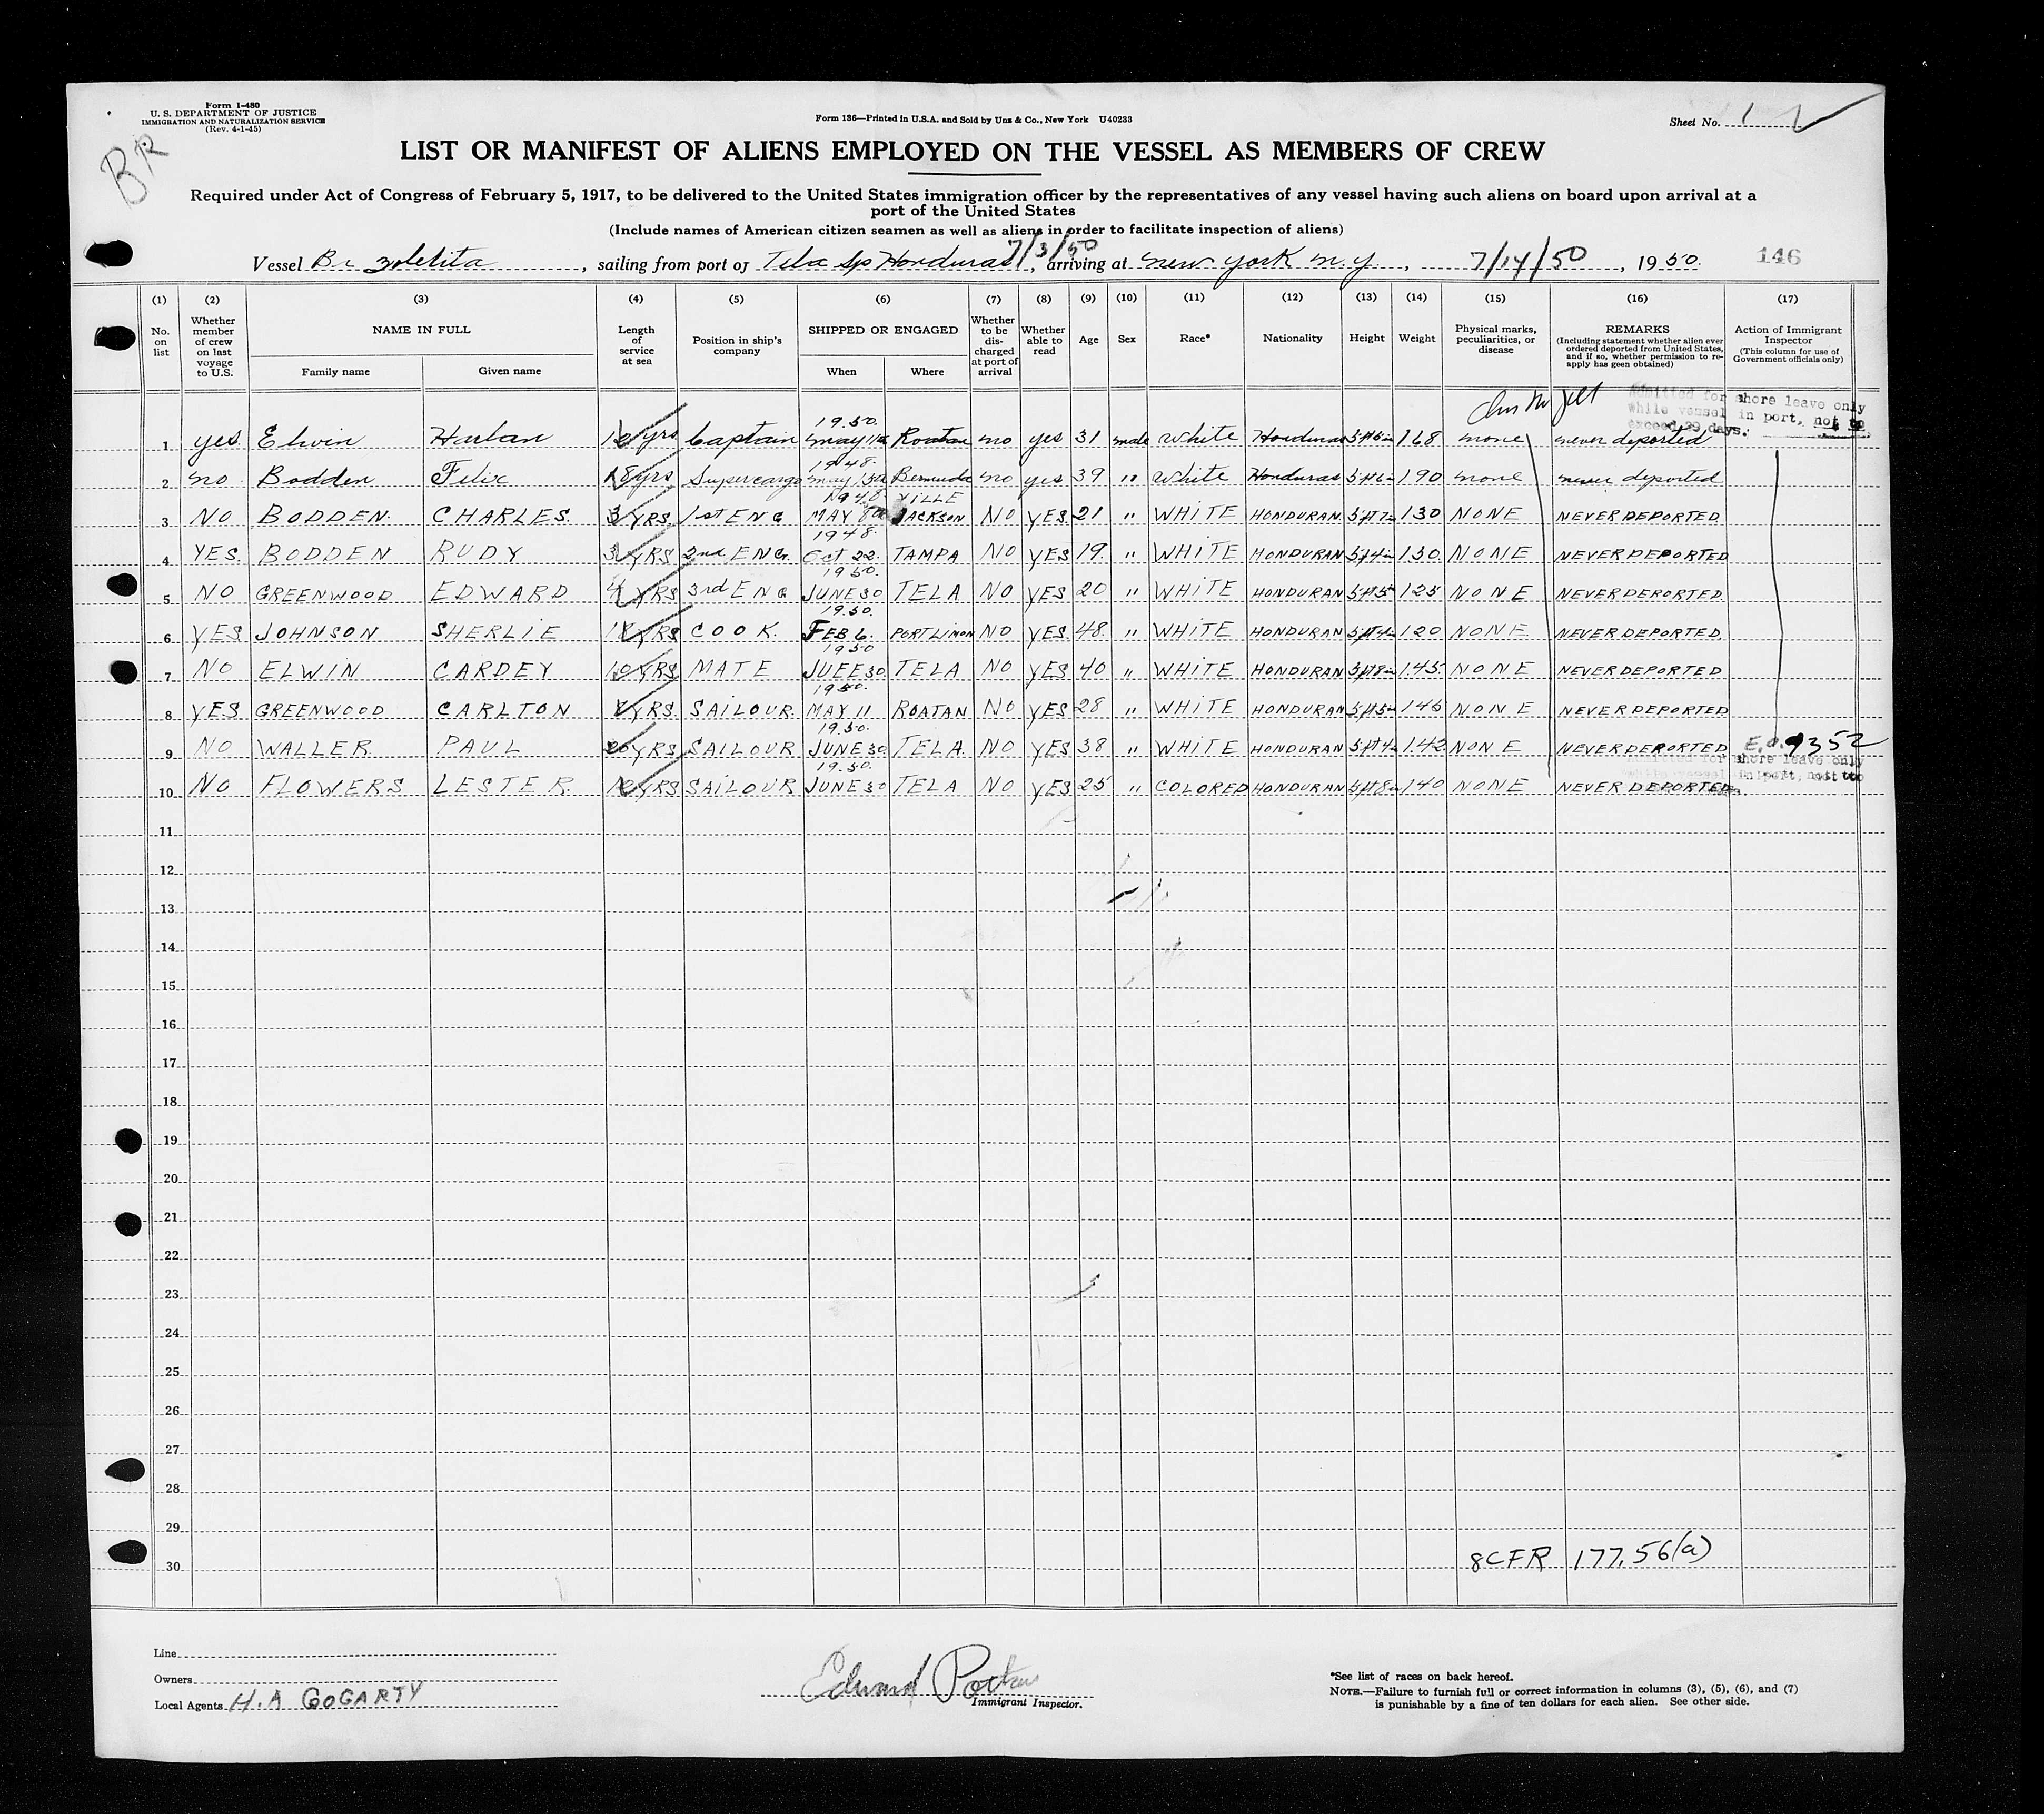 Form I-480
U. S. DEPARTMENT OF JUSTICE
IMMIGRATION AND NATURALIZATION SERVICE
(Rev. 4-1-45)
BR
Form 136—Printed in U.S.A. and Sold by Unz & Co., New York U40233
Sheet No. 1
LIST OR MANIFEST OF ALIENS EMPLOYED ON THE VESSEL AS MEMBERS OF CREW
Required under Act of Congress of February 5, 1917, to be delivered to the United States immigration officer by the representatives of any vessel having such aliens on board upon arrival at a
port of the United States
(Include names of American citizen seamen as well as aliens in order to facilitate inspection of aliens)
Vessel Br. , sailing from port of Tela Sp Honduras 7/3/50, arriving at New York N.Y., 7/14/50, 1950. 146
(1) (2) (3) (4) (5) (6) (7) (8) (9) (10) (11) (12) (13) (14) (15) (16) (17)
No. on list
Whether member of crew on last voyage to U.S.
NAME IN FULL
Family name Given name
Length of service at sea
Position in ship's company
SHIPPED OR ENGAGED
When Where
Whether to be discharged at port of arrival
Whether able to read
Age Sex Race* Nationality Height Weight
Physical marks, peculiarities, or disease
REMARKS
(Including statement whether alien ever ordered deported from United States, and if so, whether permission to re-apply has geen obtained)
Action of Immigrant Inspector
(This column for use of Government officials only)
Admitted for shore leave only
while vessel in port, not to
exceed 29 days.
1 yes Elwin Harlan yrs Captain 1950. May 11 Roatan no yes 31 male white Honduras 168 none never deported
2 no Bodden Felix 18 yrs Supercargo 1948. May Bermuda no yes 39 " white Honduras 190 none never deported
3 NO BODDEN CHARLES 3 YRS. 1st ENG 1948 MAY JACKSON VILLE NO YES. 21 " WHITE HONDURAN 5 ft 7 130 NONE NEVER DEPORTED
4 YES. BODDEN RUDY 3 YRS 2nd ENG. 1948. Oct 22. TAMPA NO YES 19. " WHITE HONDURAN 5 ft 4 130. NONE NEVER DEPORTED
5 NO GREENWOOD EDWARD 4 YRS 3rd ENG 1950. JUNE 30 TELA NO YES 20 " WHITE HONDURAN 5 ft 5 125 NONE NEVER DEPORTED
6 YES JOHNSON SHERLIE YRS COOK. 1950. FEB 6. PORT LIMON NO YES. 48. " WHITE HONDURAN 5 ft 4 120 NONE NEVER DEPORTED
7 NO ELWIN CARDEY 10 YRS MATE 1950 JUEE 30. TELA NO YES 40 " WHITE HONDURAN 5 ft 8 145. NONE NEVER DEPORTED
8 YES GREENWOOD CARLTON YRS. SAILOUR. 1950. MAY 11 ROATAN NO YES 28 " WHITE HONDURAN 5 ft 5 145 NONE NEVER DEPORTED
9 NO WALLER PAUL 20 YRS SAILOUR 1950. JUNE 30 TELA. NO YES 38 " WHITE HONDURAN 5 ft 4 142 NONE NEVER DEPORTED E.O. 9352
Admitted for shore leave only
while vessel in port, not to
10 NO FLOWERS LESTER YRS SAILOUR 1950. JUNE 30 TELA NO YES 25 " COLORED HONDURAN 5 ft 8 140 NONE NEVER DEPORTED
11
12
13
14
15
16
17
18
19
20
21
22
23
24
25
26
27
28
29
30 8 CFR 177.56(a)
Line
Owners
Local Agents H.A GOGARTY
Edward
Immigrant Inspector.
*See list of races on back hereof.
NOTE.—Failure to furnish full or correct information in columns (3), (5), (6), and (7)
is punishable by a fine of ten dollars for each alien. See other side.